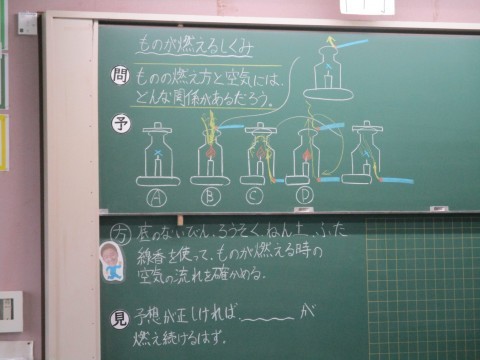 ものが燃えるしくみ
問 ものの燃え方と空気には、
どんな関係があるだろう。
予
A B C D
方 底のないびん、ろうそく、ねん土、ふた
線香を使って、ものが燃える時の
空気の流れを確かめる。
見 予想が正しければ、 が
燃え続けるはず。